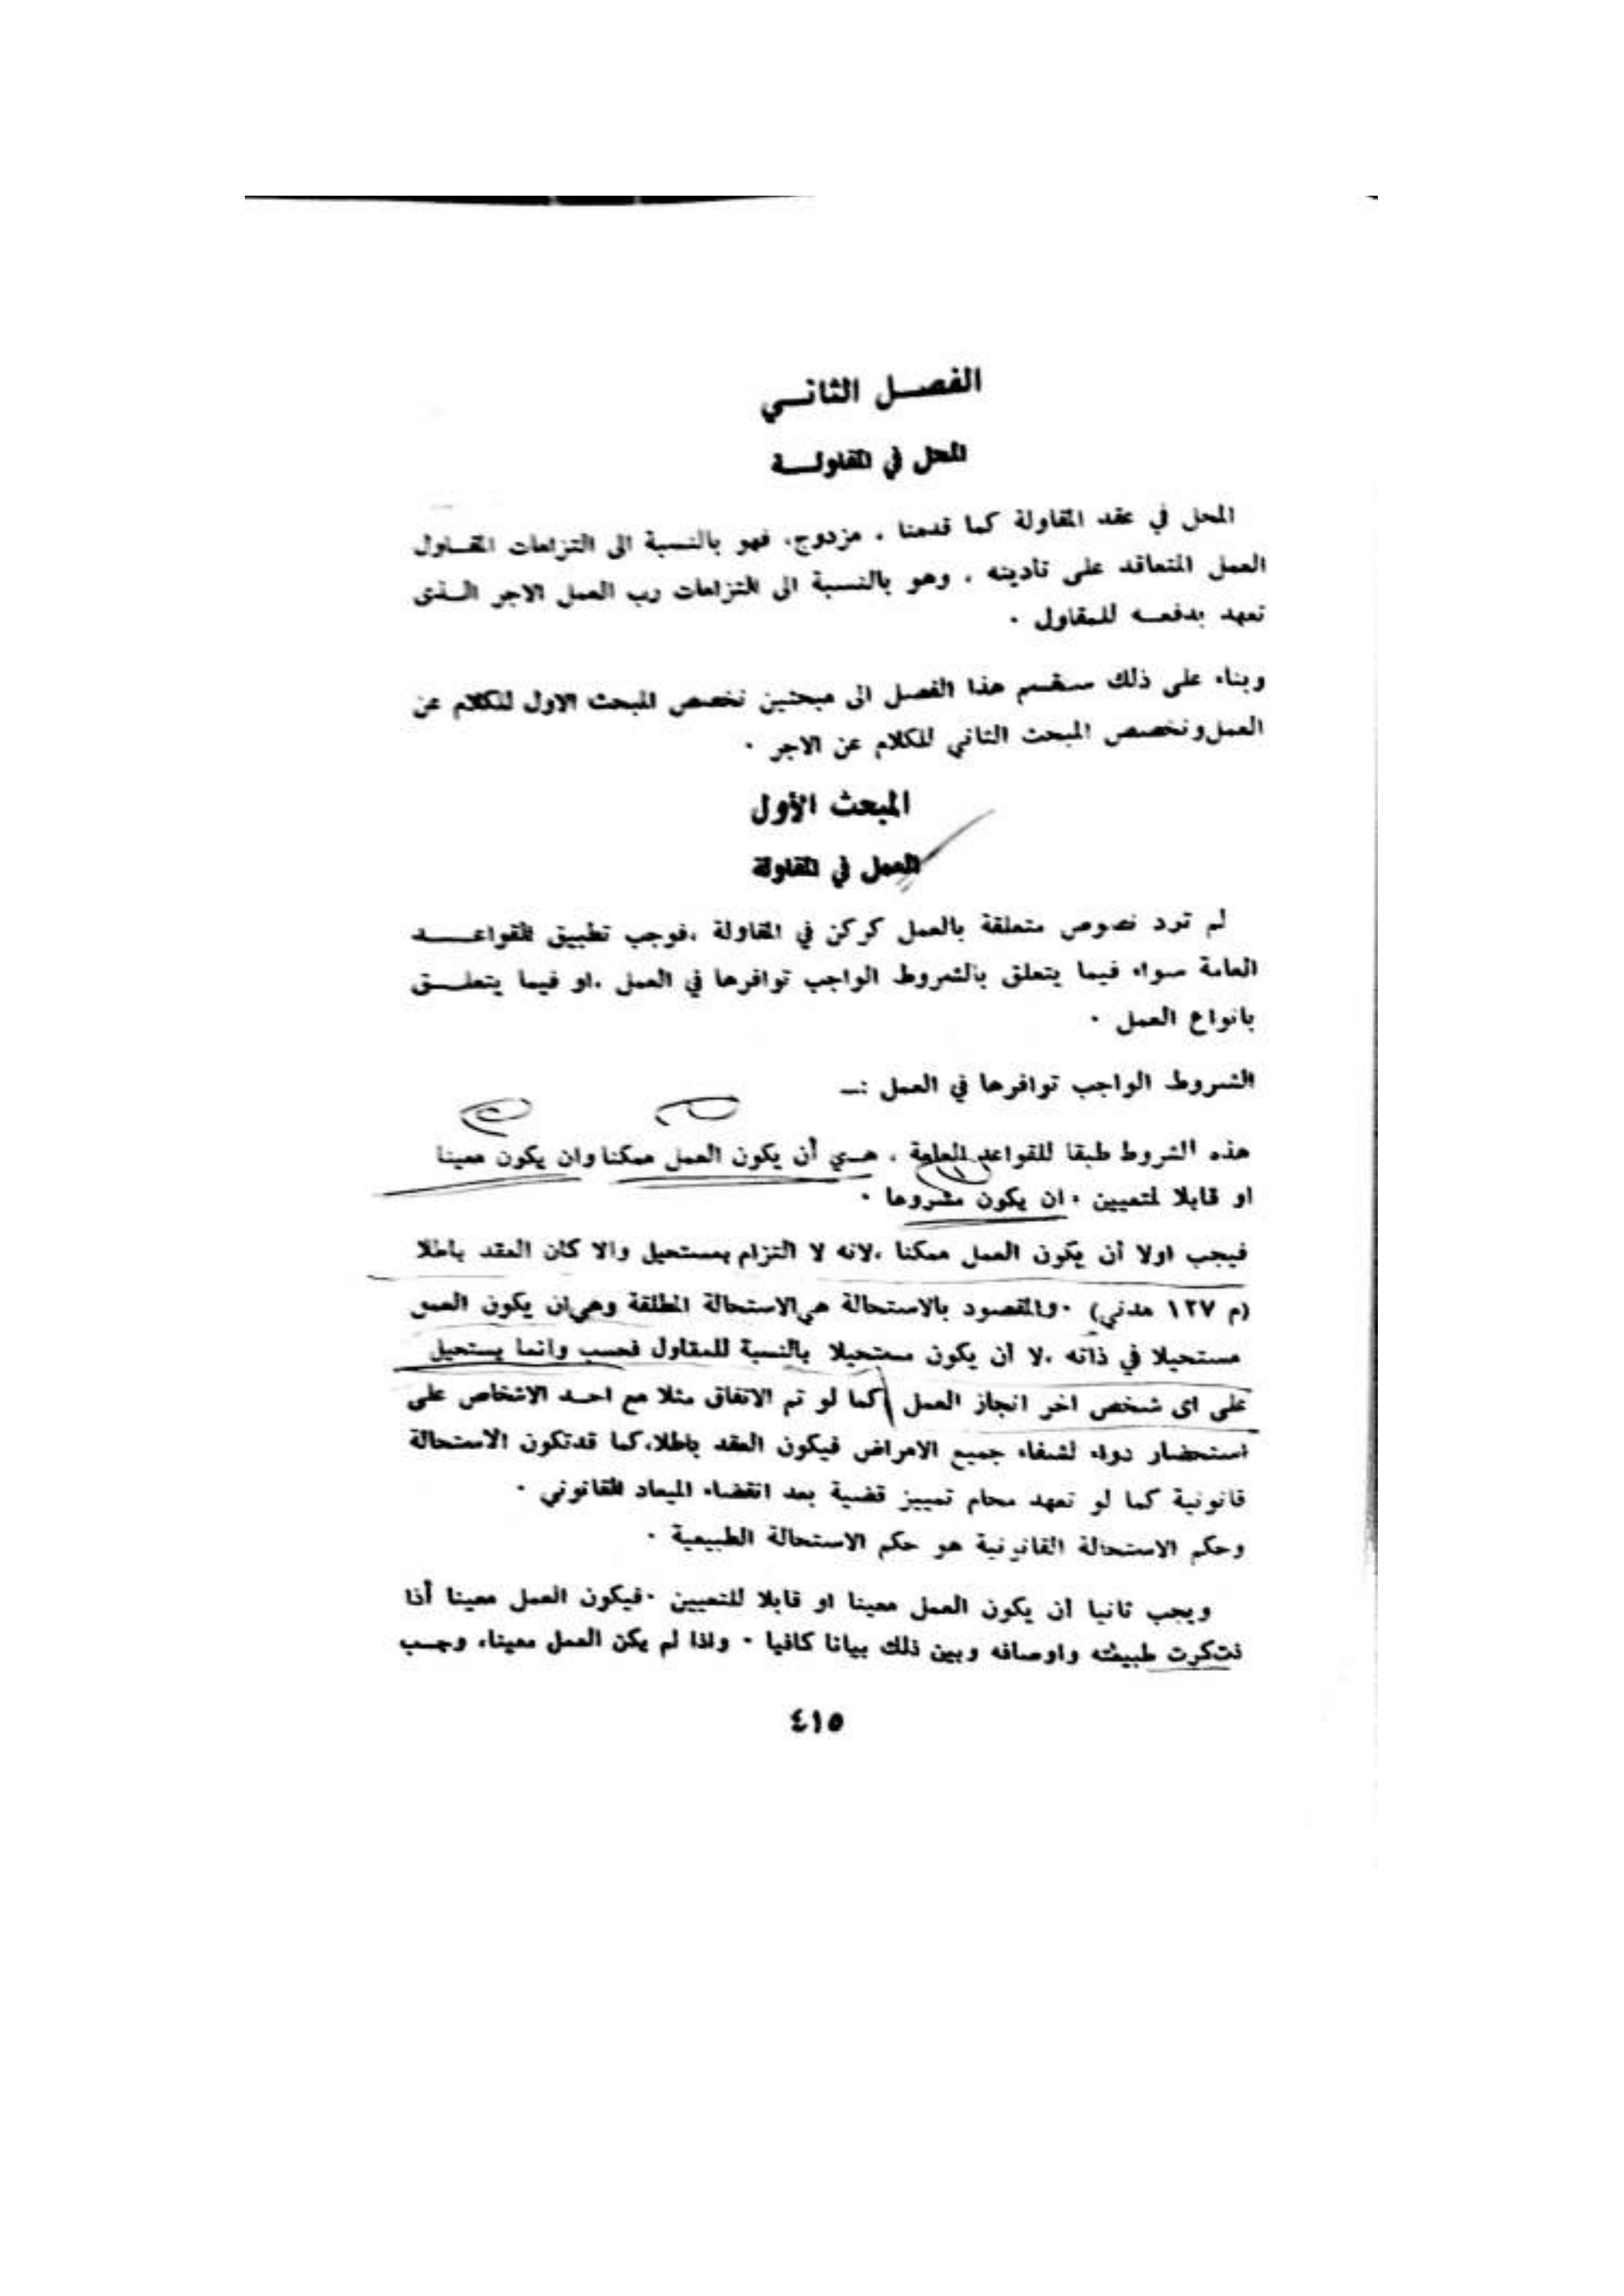 الفصل الثاني
المحل في المقاولة
المحل في عقد المقاولة كما قدمنا ، مزدوج، فهو بالنسبة الى التزامات المقاول
العمل المتعاقد على تأديته ، وهو بالنسبة الى التزامات رب العمل الاجر الذى
تعهد بدفعه للمقاول ·
وبناء على ذلك سنقسم هذا الفصل الى مبحثين نخصص المبحث الاول للكلام عن
العمل ونخصص المبحث الثاني للكلام عن الاجر ·
المبحث الأول
العمل في المقاولة
لم ترد نصوص متعلقة بالعمل كركن في المقاولة ،فوجب تطبيق القواعد
العامة سواء فيما يتعلق بالشروط الواجب توافرها في العمل ،او فيما يتعلق
بانواع العمل ·
الشروط الواجب توافرها في العمل :ــ
هذه الشروط طبقا للقواعد العامة ، هي أن يكون العمل ممكنا وان يكون معينا
او قابلا لتعيين ، ان يكون مشروعا ·
فيجب اولا أن يكون العمل ممكنا ،لانه لا التزام بمستحيل والا كان العقد باطلا
(م ١٢٧ مدني) ·والمقصود بالاستحالة هي الاستحالة المطلقة وهي ان يكون العمل
مستحيلا في ذاته ،لا أن يكون مستحيلا بالنسبة للمقاول فحسب وانما يستحيل
على اى شخص اخر انجاز العمل كما لو تم الاتفاق مثلا مع احد الاشخاص على
استحضار دواء لشفاء جميع الامراض فيكون العقد باطلا،كما قدتكون الاستحالة
قانونية كما لو تعهد محام تمييز قضية بعد انقضاء الميعاد القانوني ·
وحكم الاستحالة القانونية هو حكم الاستحالة الطبيعية ·
ويجب ثانيا أن يكون العمل معينا او قابلا للتعيين ·فيكون العمل معينا أذا
ذكرت طبيعته واوصافه وبين ذلك بيانا كافيا · واذا لم يكن العمل معينا، وجب
٤١٥